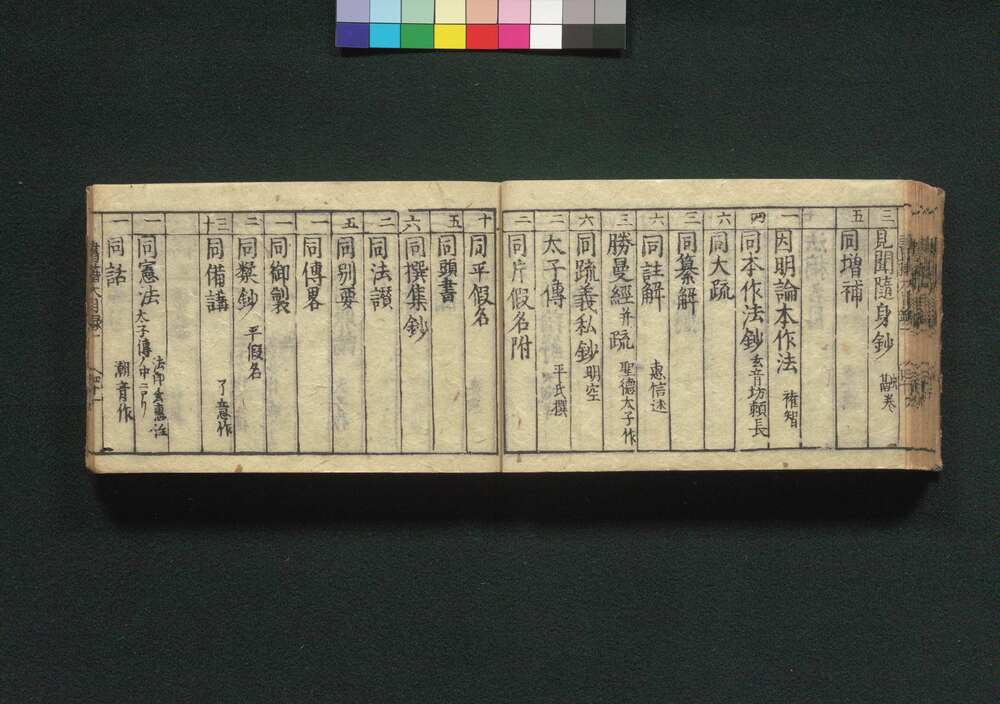 三 見聞隨身鈔
五 同增補
一 因明論本作法 権智
四 同本作法鈔 玄音坊頼長
六 同大疏
三 同纂解
六 同註解 惠信述
三 勝曼經并疏 聖德太子作
六 同疏義私鈔 明空
二 太子傳 平氏撰
二 同片假名附
十 同平假名
五 同頭書
六 同撰集鈔
二 同法讃
五 同別要
一 同傳畧
一 同御製
二 同鏨鈔 平假名
十三 同備講 了意作
一 同憲法 太子傳ノ中ニアリ 法印玄惠註
一 同話 潮音作